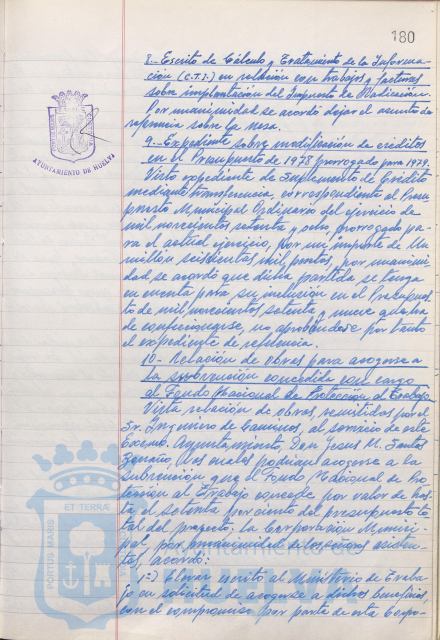 180
8.- Escrito de Cálculo y Tratamiento de la Informa-
ción (C.T.I.) en relación con trabajos y facturas
sobre implantación del Impuesto de Radicación.
Por unanimidad se acordó dejar el asunto de
referencia sobre la mesa.
9.- Expediente sobre modificación de créditos
en el Presupuesto de 1978 prorrogado para 1979.
Visto expediente de Suplemento de Crédito
mediante transferencia, correspondiente al Presu-
puesto Municipal Ordinario del ejercicio de
mil novecientos setenta y ocho, prorrogado pa-
ra el actual ejercicio, por un importe de Un
millón seiscientas mil pesetas, por unanimi-
dad se acordó que dicha partida se tenga
en cuenta para su inclusión en el Presupues-
to de mil novecientos setenta y nueve que ha
de confeccionarse, no aprobándose por tanto
el expediente de referencia.
10.- Relación de obras para acogerse a
la subvención concedida con cargo
al Fondo Nacional de Protección al Trabajo.
Vista relación de obras, remitidos por el
Sr. Ingeniero de Caminos, al servicio de este
Excmo. Ayuntamiento, Don Jesus M. Santos
los cuales podrían acogerse a la
Subvención que el Fondo Nacional de Pro-
tección al Trabajo concede por valor de has-
ta el setenta por ciento del presupuesto to-
tal del proyecto: la Corporación Munici-
pal por unanimidad de los señores asisten-
tes, acordó:
1º) Elevar escrito al Ministerio de Traba-
jo en solicitud de acogerse a dichos beneficios
con el compromiso por parte de esta Corpo-
AYUNTAMIENTO DE HUELVA
PORTUS MARIS
ET TERRÆ
Ayuntamiento